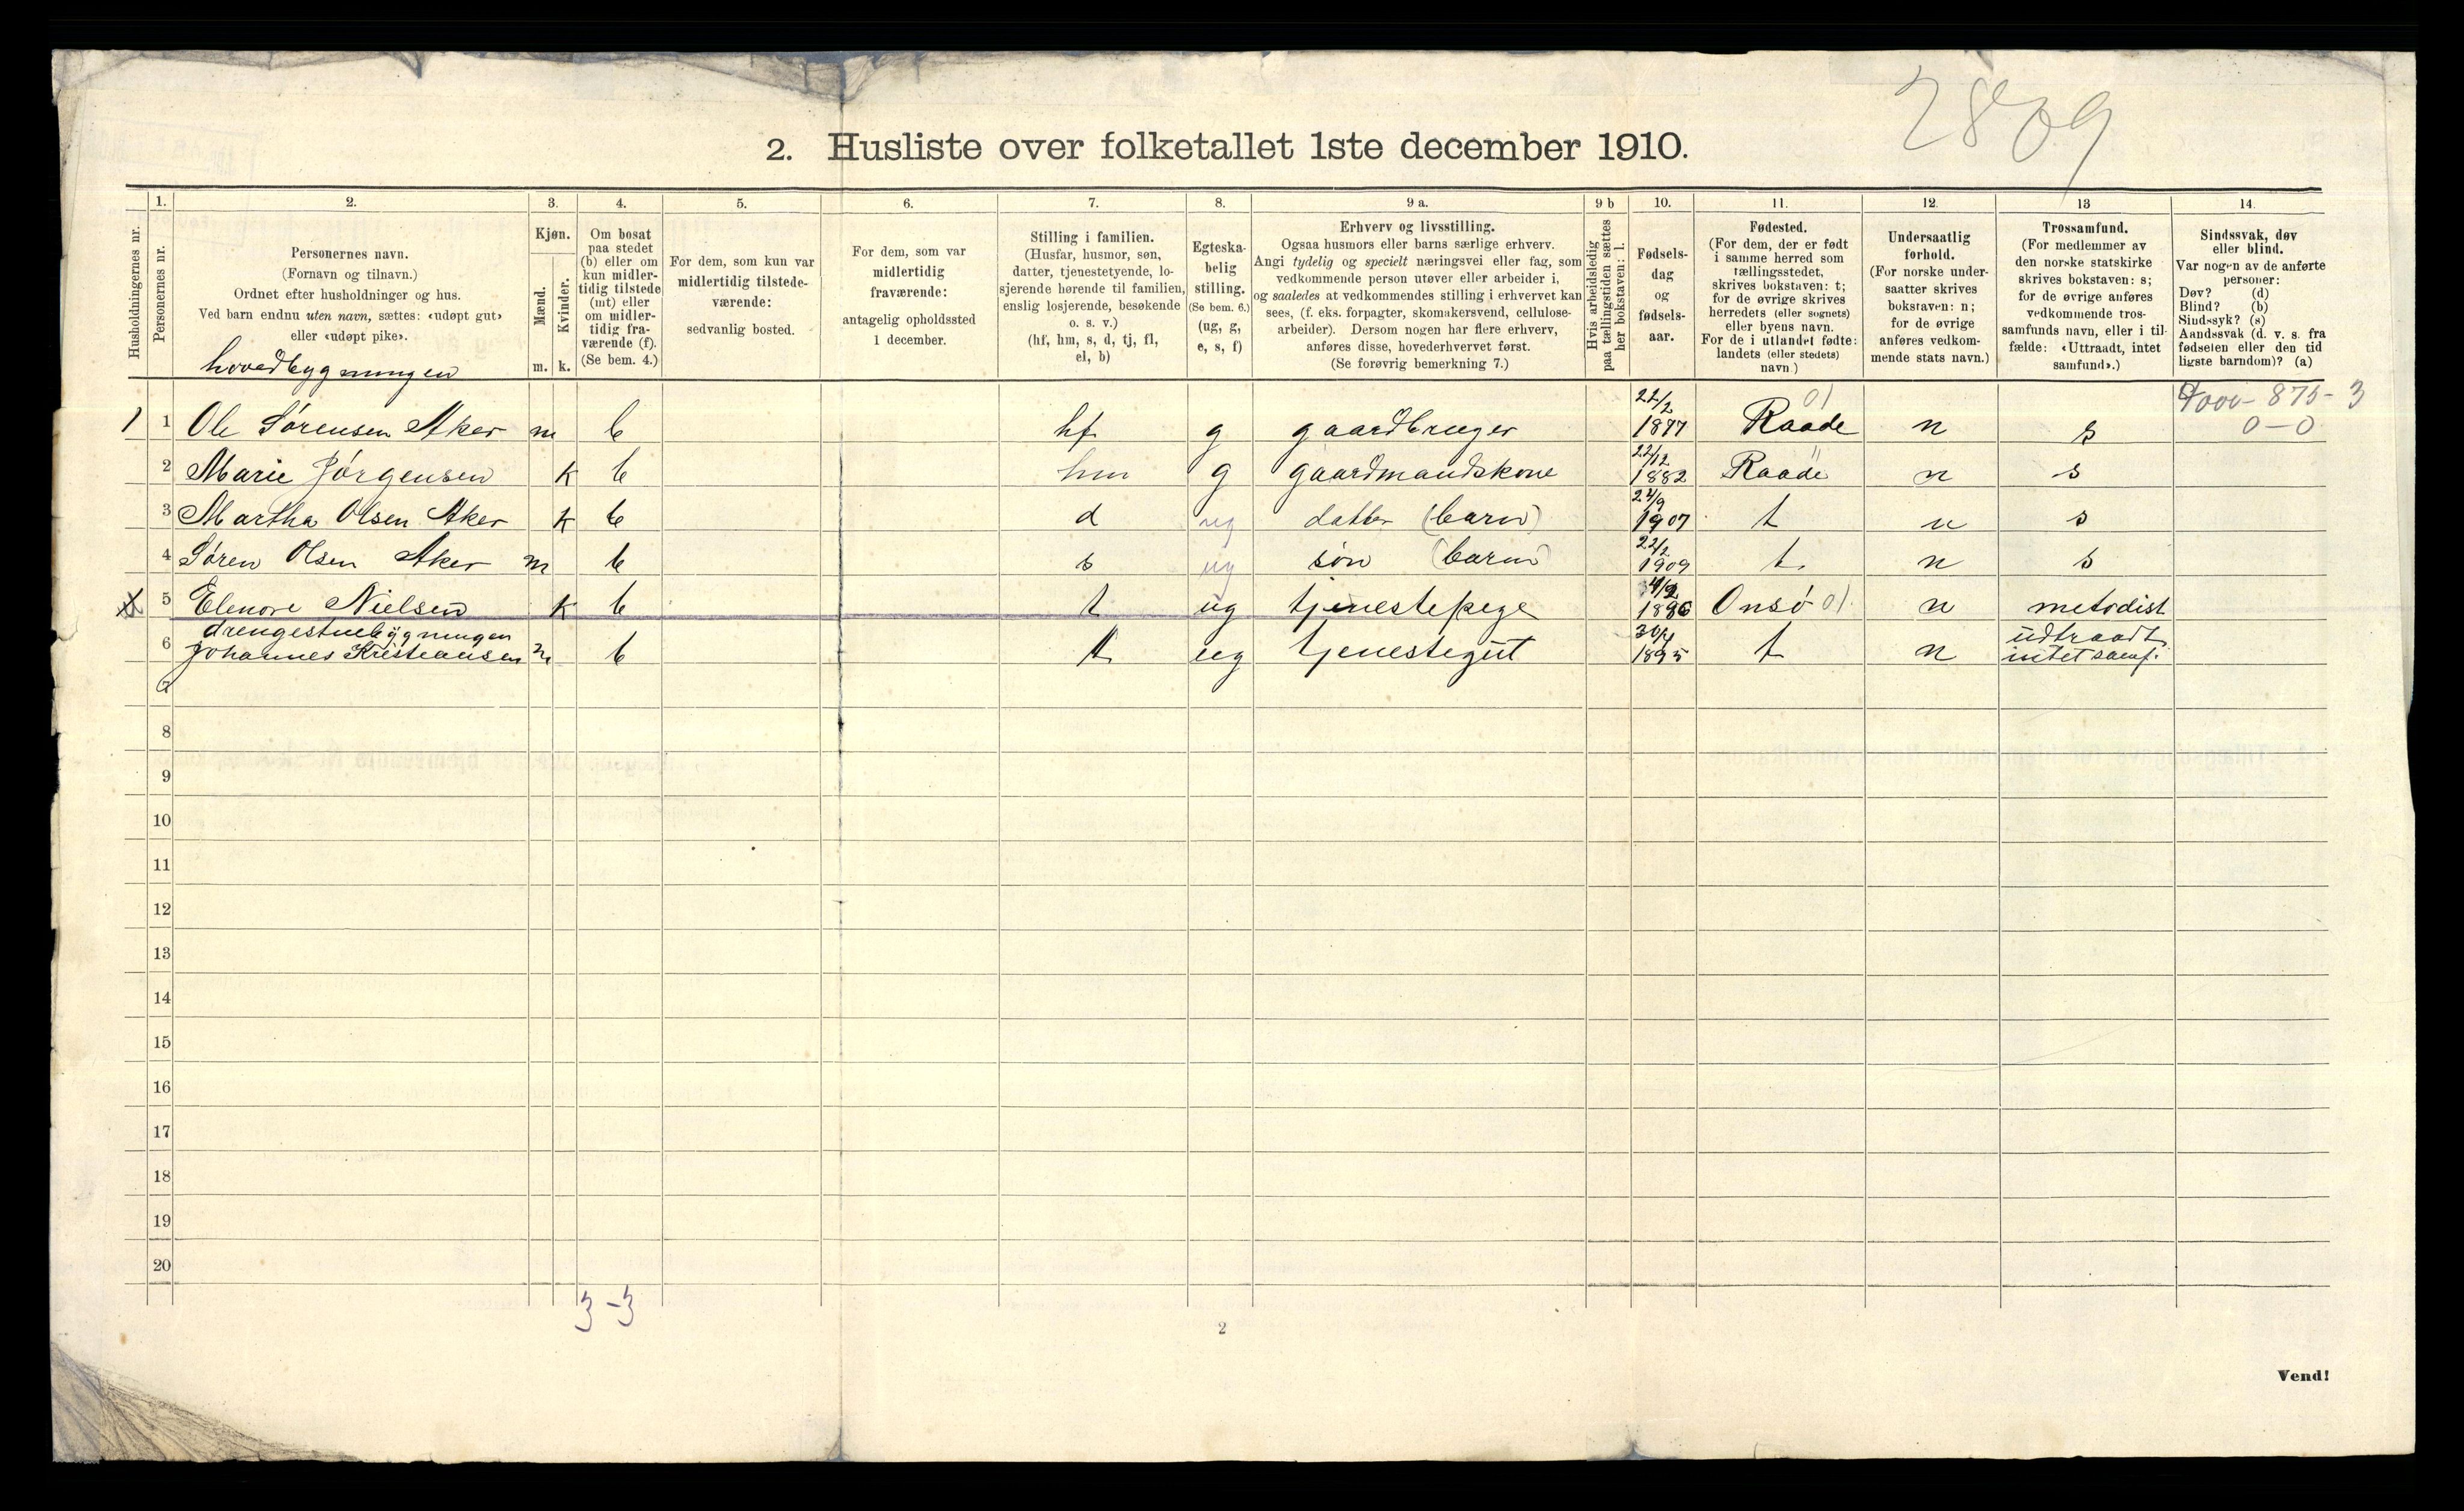 2809
2. Husliste over folketallet 1ste december 1910.
Husholdningernes nr.
1.
Personernes nr.
2.
Personernes navn.
(Fornavn og tilnavn.)
Ordnet efter husholdninger og hus.
Ved barn endnu uten navn, sættes: «udøpt gut»
eller «udøpt pike».
3.
Kjøn.
Mænd.
Kvinder.
m. k.
4.
Om bosat
paa stedet
(b) eller om
kun midler-
tidig tilstede
(mt) eller
om midler-
tidig fra-
værende (f).
(Se bem. 4.)
5.
For dem, som kun var
midlertidig tilstede-
værende:
sedvanlig bosted.
6.
For dem, som var
midlertidig
fraværende:
antagelig opholdssted
1 december.
7.
Stilling i familien.
(Husfar, husmor, søn,
datter, tjenestetyende, lo-
sjerende hørende til familien,
enslig losjerende, besøkende
o. s. v.)
(hf, hm, s, d, tj, fl,
el, b)
8.
Egteska-
belig
stilling.
(Se bem. 6.)
(ug, g,
e, s, f)
9 a.
Erhverv og livsstilling.
Ogsaa husmors eller barns særlige erhverv.
Angi tydelig og specielt næringsvei eller fag, som
vedkommende person utøver eller arbeider i,
og saaledes at vedkommendes stilling i erhvervet kan
sees, (f. eks. forpagter, skomakersvend, cellulose-
arbeider). Dersom nogen har flere erhverv,
anføres disse, hovederhvervet først.
(Se forøvrig bemerkning 7.)
9 b
Hvis arbeidsledig
paa tællingstiden sættes
her bokstaven: l.
10.
Fødsels-
dag
og
fødsels-
aar.
11.
Fødested.
(For dem, der er født
i samme herred som
tællingsstedet,
skrives bokstaven: t;
for de øvrige skrives
herredets (eller sognets)
eller byens navn.
For de i utlandet fødte:
landets (eller stedets)
navn.)
12.
Undersaatlig
forhold.
(For norske under-
saatter skrives
bokstaven: n;
for de øvrige
anføres vedkom-
mende stats navn.)
13
Trossamfund.
(For medlemmer av
den norske statskirke
skrives bokstaven: s;
for de øvrige anføres
vedkommende tros-
samfunds navn, eller i til-
fælde: «Uttraadt, intet
samfund».)
14.
Sindssvak, døv
eller blind.
Var nogen av de anførte
personer:
Døv? (d)
Blind? (b)
Sindssyk? (s)
Aandssvak (d. v. s. fra
fødselen eller den tid
ligste barndom)? (a)
hovedbygningen
22/2 01 9000-875-3
1 1 Ole Sørensen Aker m b hf g gaardbruger 1877 Raade n s 0-0
22/12
2 Marie Jørgensen k b hm g gaardmandskone 1882 Raade n s
22/9
3 Martha Olsen Aker k b d ug datter (barn) 1907 t n s
22/2
4 Søren Olsen Aker m b s ug søn (barn) 1909 t n s
5 Elenore Nielsen k b t ug tjenestepege 1896 Onsø 01 n metodist
drengestuebygningen 30/4 udtraadt
6 Johannes Kristiansen m b t ug tjenestegut 1895 t n intet samf.
7
8
9
10
11
12
13
14
15
16
17
18
19
20
3-3
2
Vend!